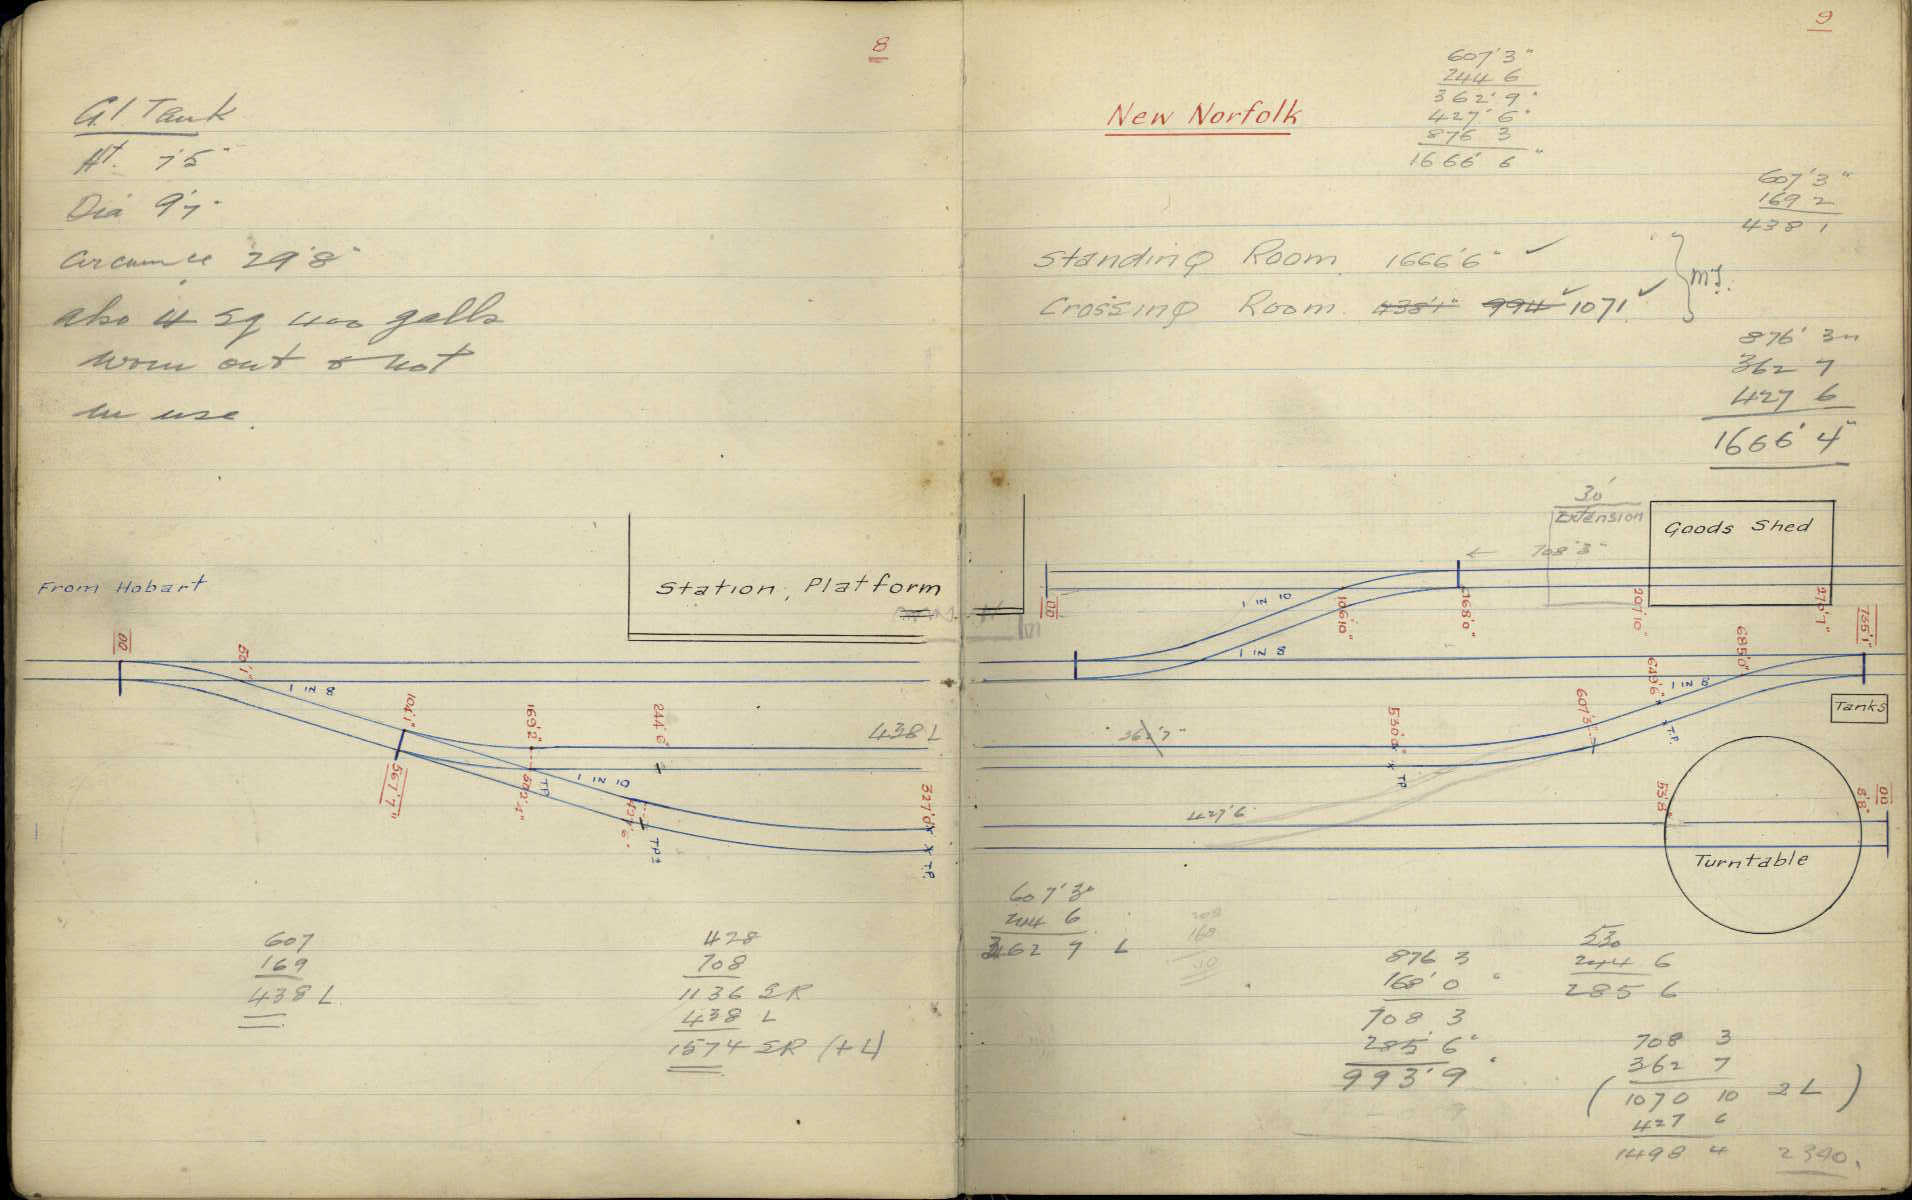 8
G.I Tank
Ht. 7'5"
Dia 9'7"
Circumce 29'8"
also 4 sq 400 galls
worn out & not
in use.
From Hobart
Station Platform
00
50'1"
1 IN 8
104'1"
567'7"
169'2"
502'4"
TP
244'6"
1 IN 10
427'6"
TP
438 L
327'0"
T.P.
607
169
438 L
428
708
1136 SR
438 L
1574 SR (+L)
9
New Norfolk
607'3"
244 6
362'9"
427'6"
876 3
1666 6"
607'3"
169 2
438 1
Standing Room 1666'6" ✓
Crossing Room 438'1" 994 ✓ 1071 ✓
M.T.
876' 3"
362 7
427 6
1666' 4"
30'
Extension
Goods Shed
← 708'3"
00
1 IN 10
106'10"
168'0"
207'10"
270'7"
1 IN 8
685'0"
765'1"
649'6"
1 IN 8
607'3"
T.P.
Tanks
362'7"
530'0"
TP
427'6
53'8"
00
8'8"
Turntable
607'3"
244 6
362 9 L
208
168
40
876 3
168' 0"
708 3
285 6"
993' 9"
530
244 6
285 6
708 3
362 7
( 1070 10 2L )
427 6
1498 4 2340.